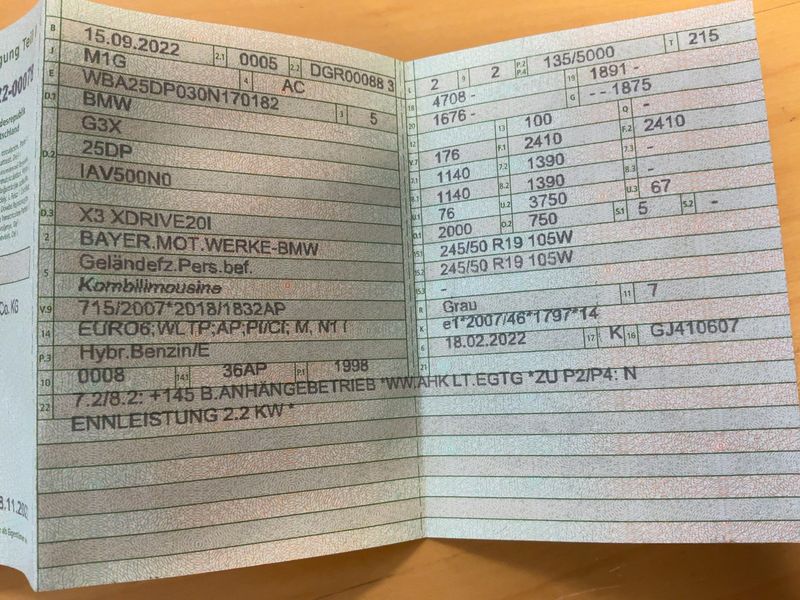 gung Teil I
B 15.09.2022 2.1 0005 2.2 DGR00088 3
J M1G 4 AC
E WBA25DP030N170182 3 5
D.1 BMW
G3X
D.2 25DP
IAV500N0
D.3 X3 XDRIVE20I
2 BAYER.MOT.WERKE-BMW
5 Geländefz.Pers.bef.
Kombilimousine
V.9 715/2007*2018/1832AP
14 EURO6;WLTP;AP;PI/CI; M, N1 I
P.3 Hybr.Benzin/E
10 0008 14.1 36AP P.1 1998
22 7.2/8.2: +145 B.ANHÄNGEBETRIEB *WW.AHK LT.EGTG *ZU P2/P4: N
ENNLEISTUNG 2.2 KW *
L 2 9 2 P.2 P.4 135/5000 T 215
18 4708 - 19 1891 -
20 1676 - G - - - 1875
12 - 13 100 Q -
V.7 176 F.1 2410 F.2 2410
7.1 1140 7.2 1390 7.3 -
8.1 1140 8.2 1390 8.3 -
U.1 76 U.2 3750 U.3 67
O.1 2000 O.2 750 S.1 5 S.2 -
15.1 245/50 R19 105W
15.2 245/50 R19 105W
15.3 -
R Grau 11 7
K e1*2007/46*1797*14
6 18.02.2022 17 K 16 GJ410607
21
Co. KG